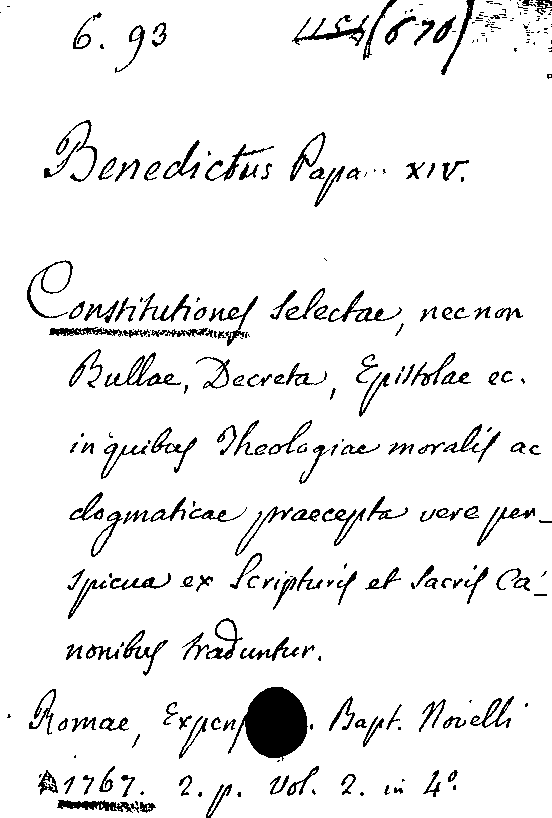 6. 93 1154 (670)
Benedictus Papa XIV.
Constitutiones selectae, necnon
Bullae, Decreta, Epistolae ec.
in quibus Theologiae moralis ac
dogmaticae praecepta vere per_
spicua ex Scripturis et Sacris Ca_
nonibus traduntur.
Romae, Bapt. Novelli
1767. 2. p. Vol. 2. in 4º.